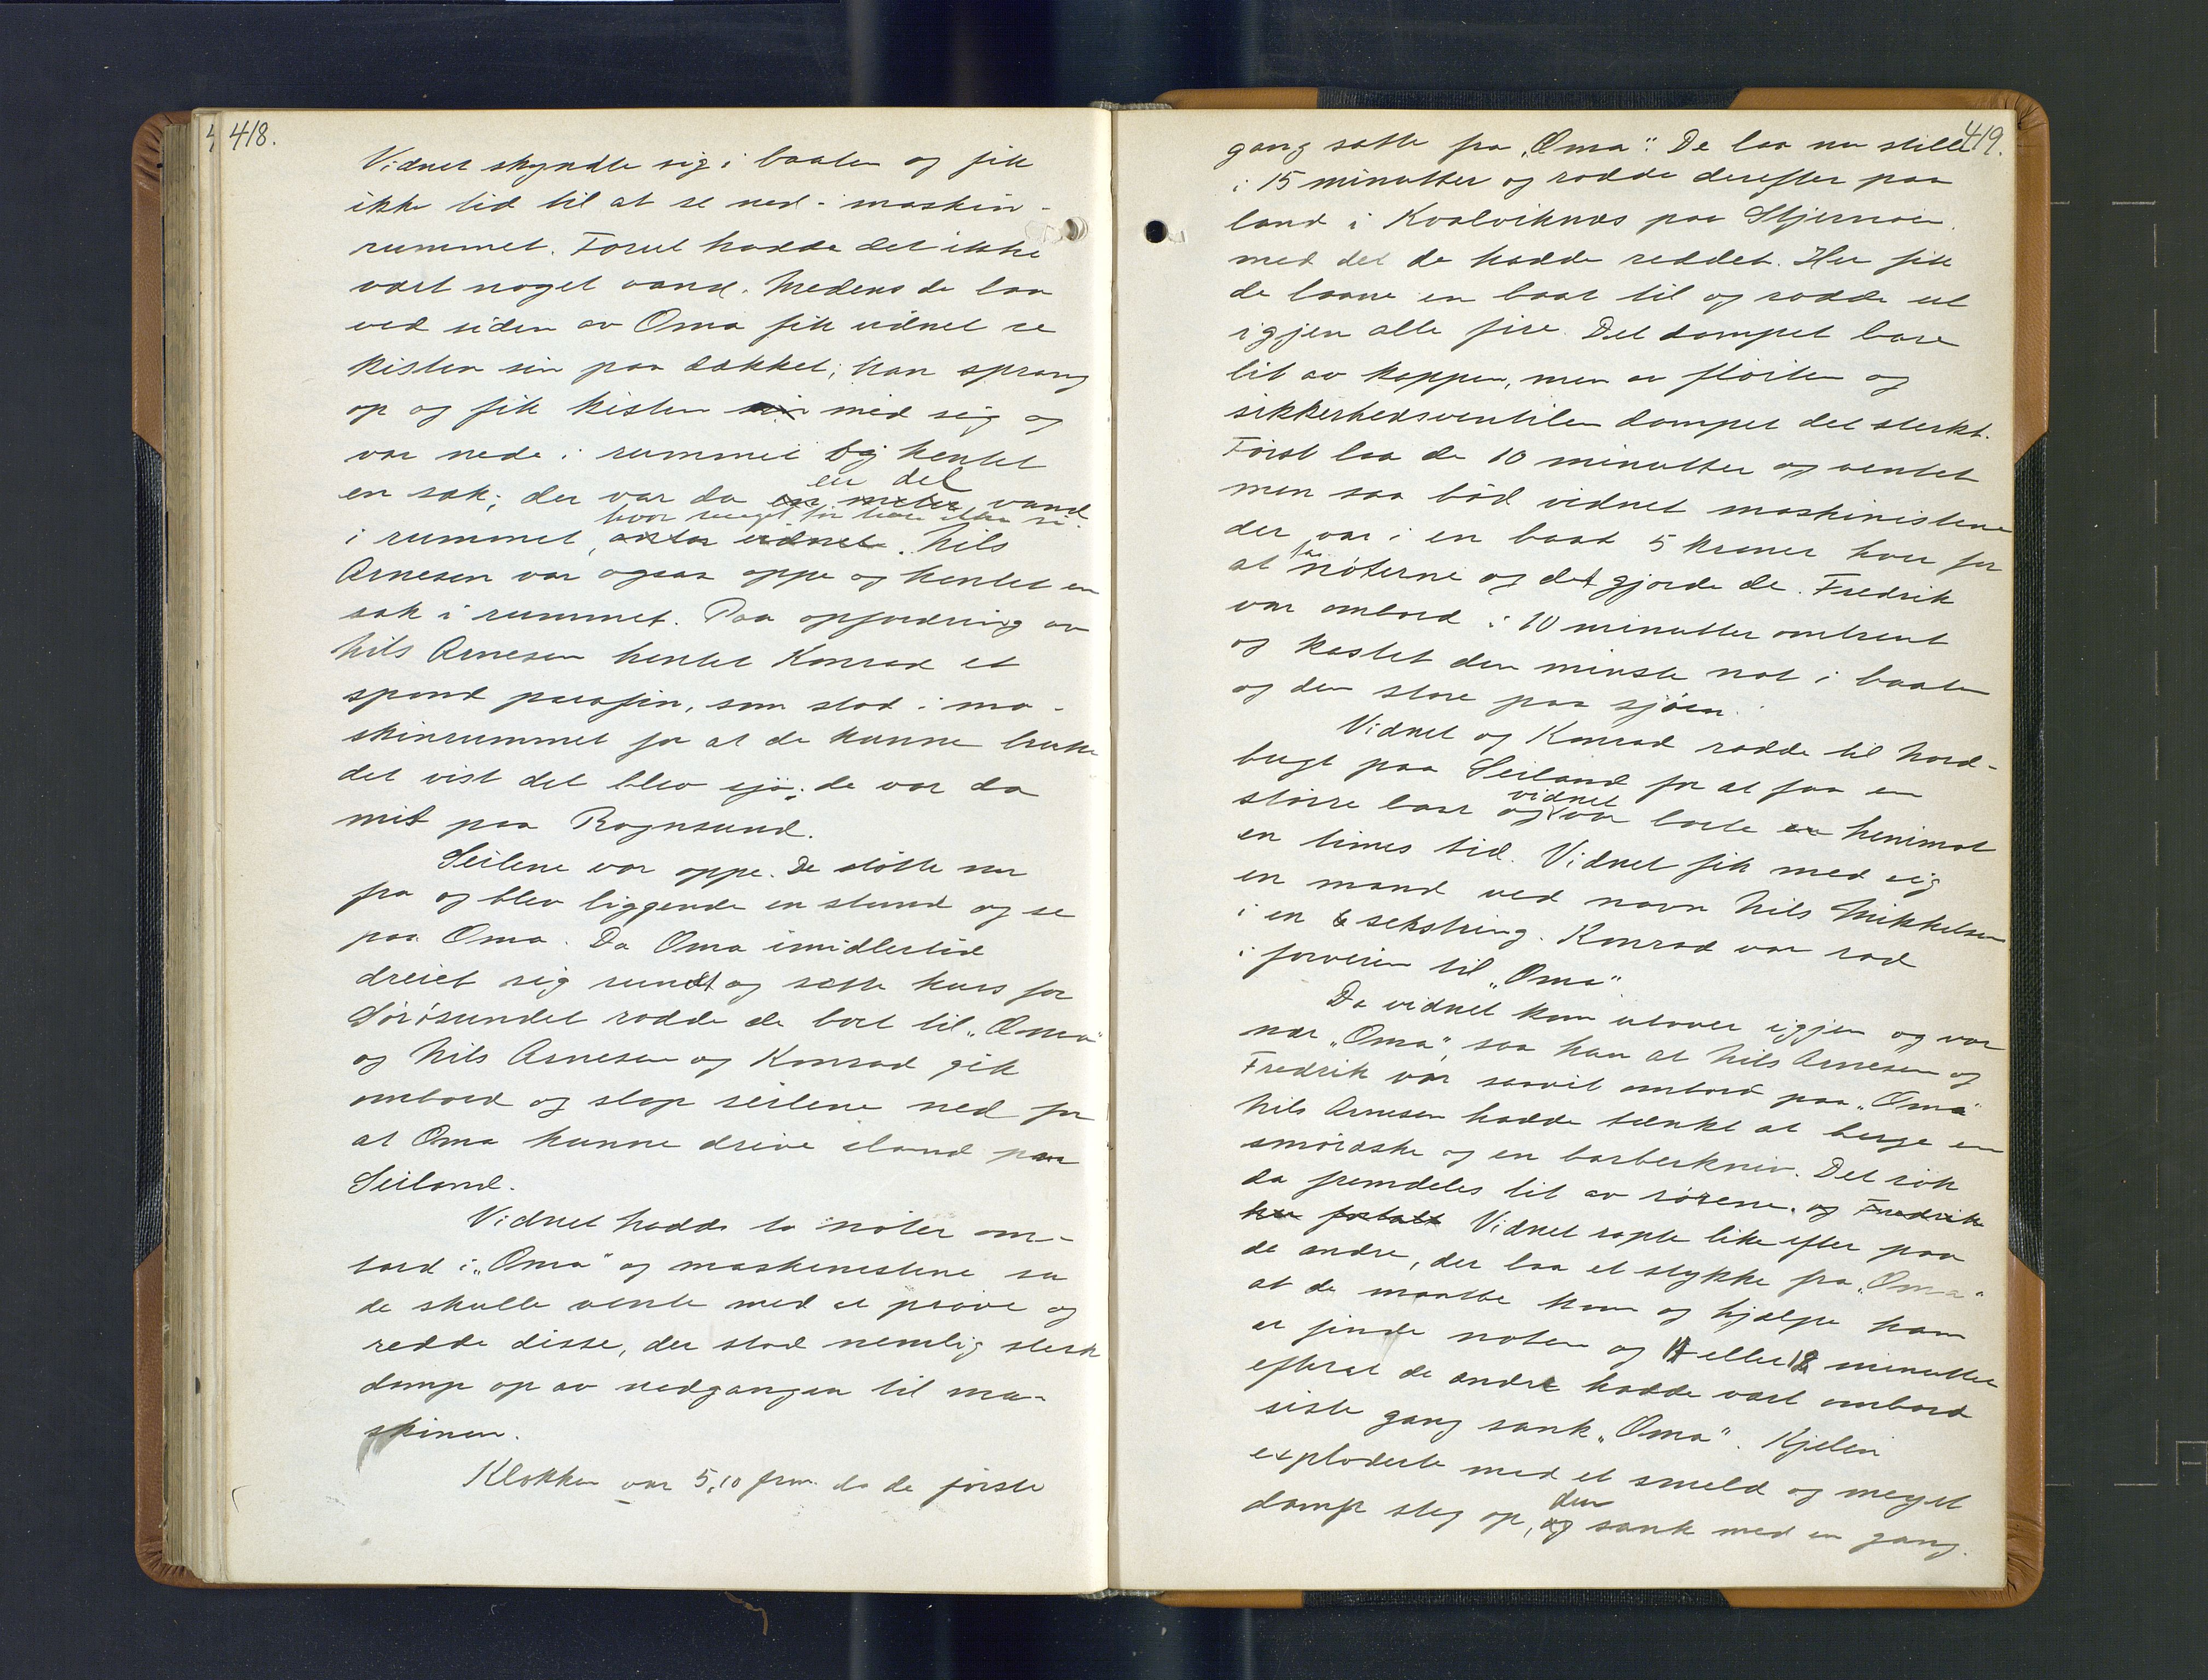 418.
Vidnet skyndte sig i baaten og fik
ikke tid til at se ned i maskin-
rummet. Forut hadde det ikke
vært noget vand. Medens de laa
ved siden av Oma fik vidnet se
kisten sin paa dækket; han sprang
op og fik kisten sin med sig og
var nede i rummet og hentet
en del
en sæk; der var da en meter vand
hvor meget tør han ikke si
i rummet, antar vidnet. Nils
Arnesen var ogsaa oppe og hentet en
sæk i rummet. Paa opfordring av
Nils Arnesen hentet Konrad et
spand parafin, som stod i ma-
skinrummet for at de kunne bruke
det vist det blev sjø; de var da
mit paa Rognsund.
Seilene var oppe. De støtte nu
fra og blev liggende en stund og se
paa Oma. Da Oma imidlertid
dreiet sig rundt og satte kurs for
Sørøsundet rodde de bort til „Oma"
og Nils Arnesen og Konrad gik
ombord og slap seilene ned for
at Oma kunne drive iland paa
Seiland.
Vidnet hadde to nøter om-
bord i „Oma" og maskinistene sa
de skulle vente med at prøve og
redde disse, der stod nemlig sterk
damp op av nedgangen til ma-
skinen.
Klokken var 5,10 fm. da de første
419.
gang satte fra „Oma". De laa nu stille
i 15 minutter og rodde derefter paa
land i Kvalviknæs paa Stjernøen
med det de hadde reddet. Her fik
de laane en baat til og rodde ut
igjen alle fire. Det dampet bare
lit av kappen, men av fløiten og
sikkerhedsventilen dampet det sterkt.
Først laa de 10 minutter og ventet
men saa bød vidnet maskinistene
der var i en baat 5 kroner hver for
at ta nøterne og det gjorde de. Fredrik
var ombord i 10 minutter omtrent
og kastet den minste not i baaten
og den store paa sjøen.
Vidnet og Konrad rodde til Nord-
bugt paa Seiland for at faa en
vidnet
større baat og var borte en henimot
en times tid. Vidnet fik med sig
en mand ved navn Nils Mikkelsen
i en 6 sekstring. Konrad var rod
i forveien til „Oma"
Da vidnet kom utover igjen og var
nær „Oma", saa han at Nils Arnesen og
Fredrik var snarvit ombord paa „Oma"
Nils Arnesen hadde tænkt at berge en
smøræske og en barberkniv. Det røk
da fremdeles lit av rørene. og Fredrik
har fortalt Vidnet ropte like efter paa
de andre, der laa et stykke fra „Oma"
at de maatte kom og hjælpe ham
at finde noten og eller 18 minutter
efterat de andre hadde vært ombord
siste gang sank „Oma". Kjelen
exploderte med et smeld og meget
den
damp steg op, og sank med en gang.